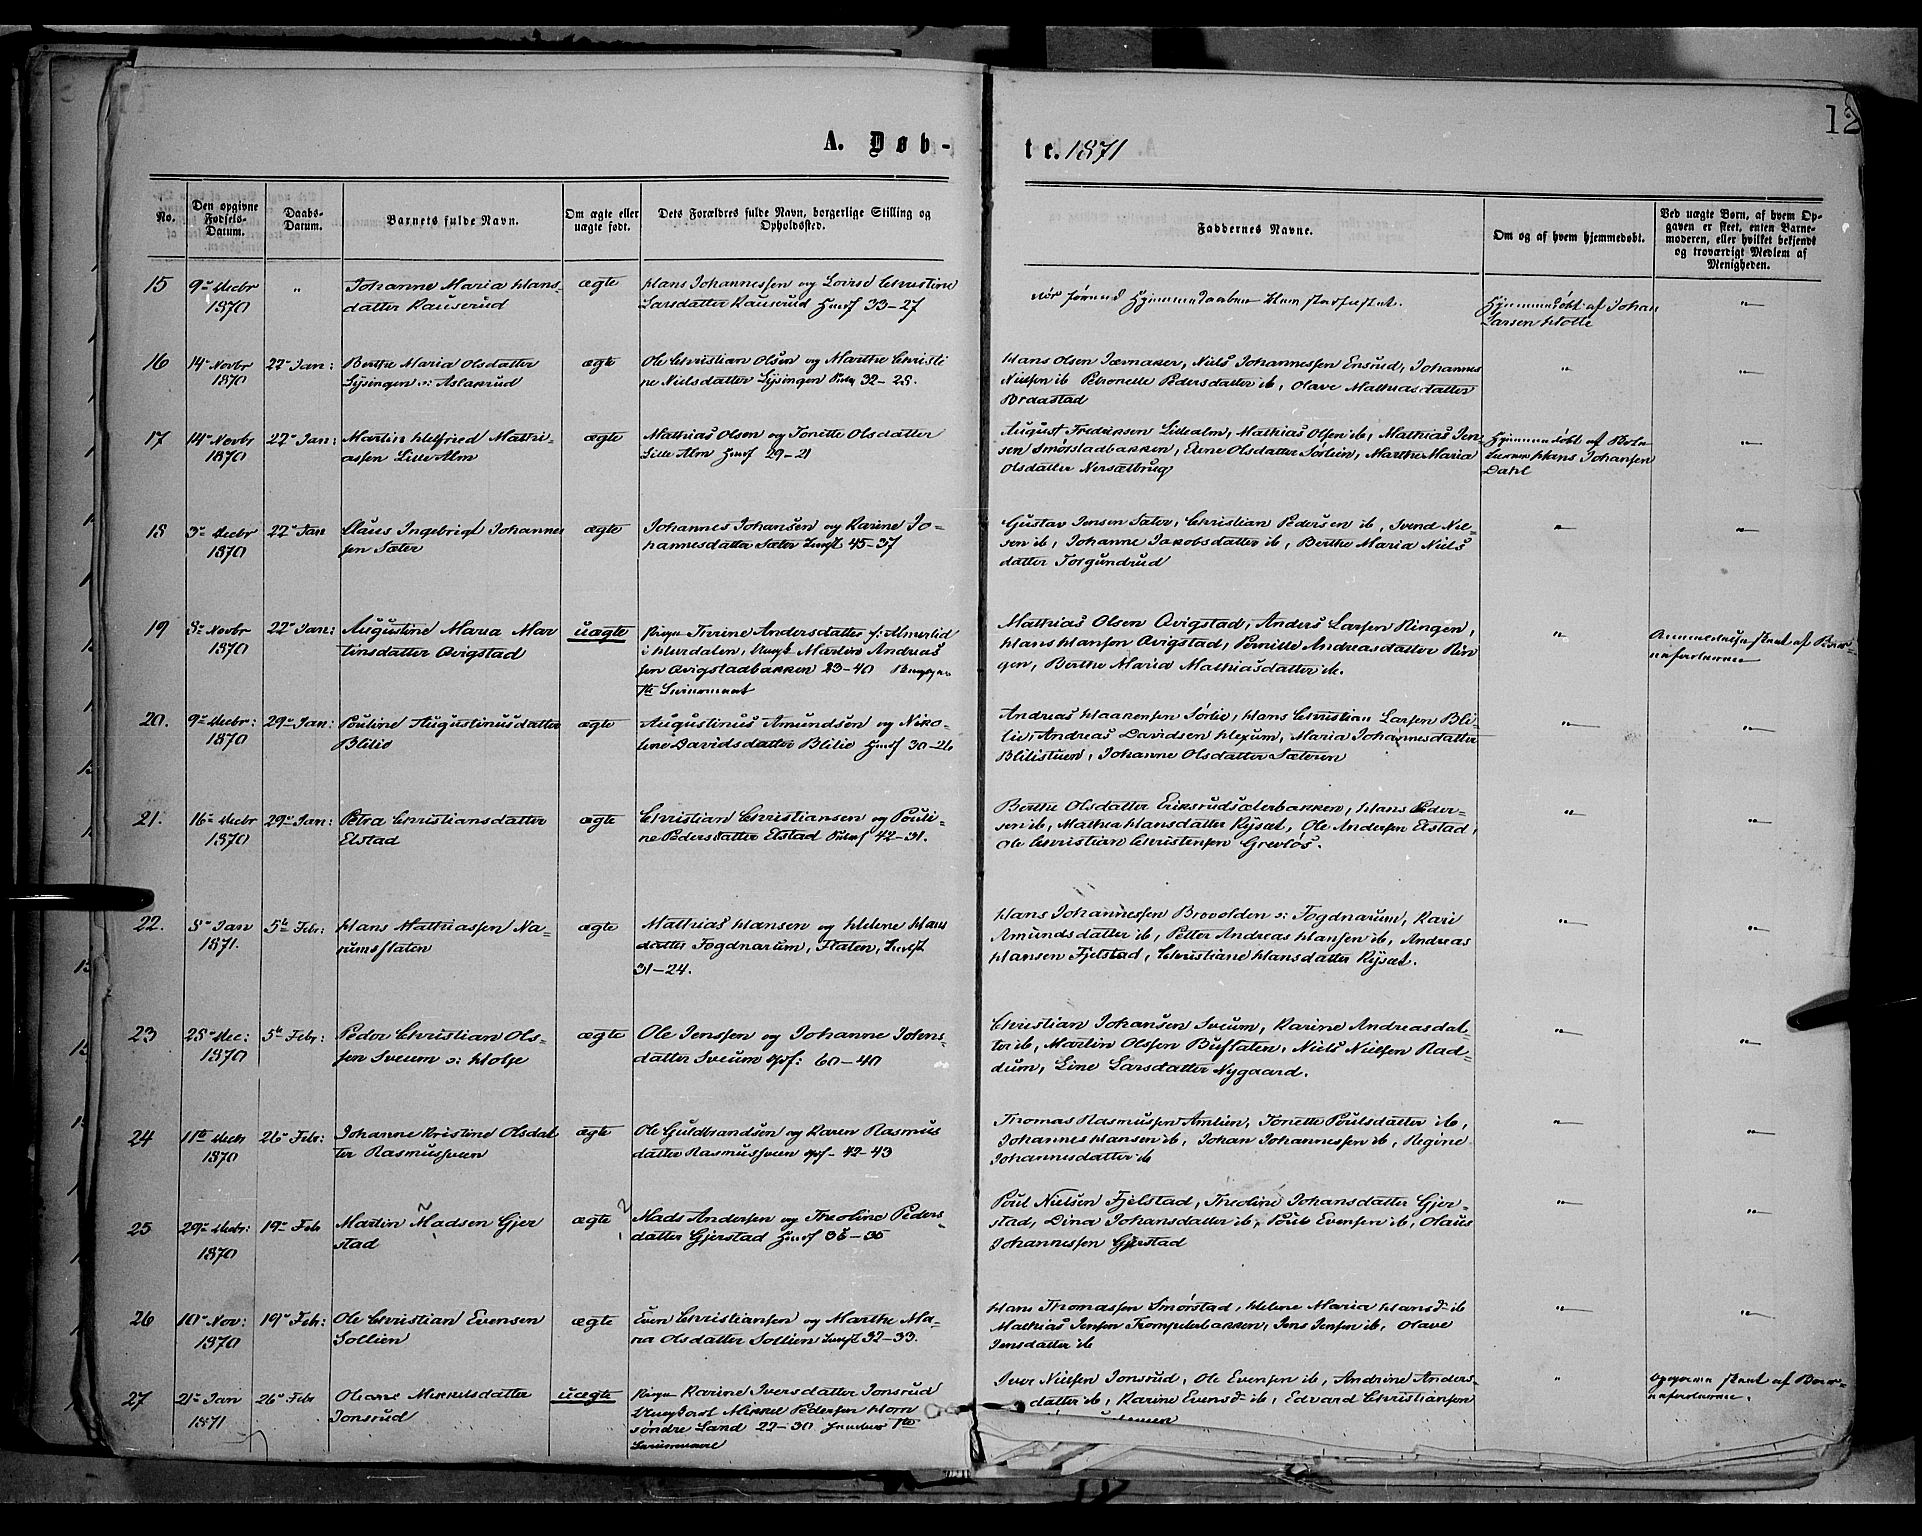 12
A. Døb-
te. 1871
No.
Den opgivne Fødsels-Datum.
Daabs-Datum.
Barnets fulde Navn.
Om ægte eller uægte født.
Dets Forældres fulde Navn, borgerlige Stilling og Opholdssted.
Faddernes Navne.
Om og af hvem hjemmedøbt.
Ved uægte Børn, af hvem Opgaven er skeet, enten Barnemoderen, eller hvilket bekjendt og troværdigt Medlem af Menigheden.
15 9de Decbr " Johanne Maria Hans= ægte Hans Johannessen og Lovise Christine
1870 datter Kauserud Larsdatter Kauserud 33-27
Hjemmedøbt af Johan
Larsen Holte
16 14de Novbr 22de Jan: Berthe Maria Olsdatter ægte Ole Christian Olsen og Marthe Christi
1870 Lysingen o: Aslaksrud ne Nielsdatter Lysingen 32-28.
Hans Olsen Jævnaker, Niels Johannessen Ensrud, Johannes
Nielsen ib, Petronelle Pedersdatter ib, Olave Mathiasdatter
Braastad
17 14de Novbr 22de Jan: Martin Helfried Mathi= ægte Mathias Olsen og Tonette Olsdatter
1870 assen Lille Alm Lille Alm 29-21
August Fredriksen Lillealm, Mathias Olsen ib, Mathias Jen=
sen Smørstadbakken, Elene Olsdatter Sørlien, Marthe Maria
Olsdatter Nersætbrug
Hjemmedøbt af
Hans Johansen
Dahl
18 3de Decbr 22de Jan Claus Ingebrigt Johannes ægte Johannes Johansen og Karine Jo=
1870 sen Sæter hannesdatter Sæter 45-37
Gustav Jensen Sæter, Christian Pedersen ib, Svend Niel=
sen ib, Johanne Jakobsdatter ib, Berthe Maria Niels
datter Torgundrud
19 8de Novbr 22de Jan: Augustine Maria Mar uægte Pige Thrine Andersdatter
1870 tinsdatter Qvigstad i Hurdalen, Ungk. Martin Andreas
sen Qvigstadbakken 23-40
Mathias Olsen Qvigstad, Anders Larsen Ringen,
Hans Hansen Qvigstad, Pernille Andreasdatter Rin
gen, Berthe Maria Mathiasdatter ib.
Anmeldelse skeet af Bar=
nefaderen
20. 9de Decbr: 29de Jan: Pouline Augustinusdatter ægte Augustinus Amundsen og Niko=
1870 Blilie line Davidsdatter Blilie 30-26
Andreas Haakensen Sørlie, Hans Christian Larsen Bli=
lie, Andreas Davidsen Hexum, Maria Johannesdatter
Blilistuen, Johanne Olsdatter Sæteren
21. 16de Decbr 29de Jan: Petra Christiansdatter ægte Christian Christiansen og Pouli=
1870 Elstad ne Pedersdatter Elstad 42-31.
Berthe Olsdatter Eriksrudsæterbakken, Hans Peder=
sen ib, Mathea Hansdatter Rysæt, Ole Andersen Elstad,
Ole Christian Christensen Grevløs.
22. 8de Jan 5te Febr: Hans Mathiassen Na= ægte Mathias Hansen og Helene Hans
1871. rumsflaten datter Fogdnarum, Flaten,
31-24.
Hans Johannessen Brovolden o: Fogdnarum, Kari
Amundsdatter ib, Petter Andreas Hansen ib, Andreas
Hansen Fjelstad, Christiane Hansdatter Rysæt.
23 28de Dec: 5te Febr: Peder Christian Ols= ægte Ole Jenssen og Johanne Jolens=
1870 sen Sveum o: Holse datter Sveum 60-40
Christian Johansen Sveum, Karine Andreasdat=
ter ib, Martin Olssen Buflaten, Niels Nielsen Rad=
dum, Line Larsdatter Nygaard.
24 11te Decb 26de Febr: Johanne Kristine Olsdat ægte Ole Guldbrandsen og Karen Rasmus
1870 ter Rasmussveen datter Rasmussveen 42-43
Thomas Rasmussen Amlien, Tonette Poulsdatter ib,
Johannes Hansen ib, Johan Johannessen ib, Regine
Johannesdatter ib
25 29de Decbr: 19de Feb Martin Madsen Gjer ægte Mads Andersen og Theoline Peders=
1870 stad datter Gjerstad 38-35
Poul Nielsen Fjelstad, Theoline Johansdatter Gjer=
stad, Dina Johansdatter ib, Poul Evensen ib, Olaus
Johannessen Gjerstad
26 10de Nov: 19de Feb: Ole Christian Evensen ægte Even Christiansen og Marthe Ma=
1870 Sollien ria Olsdatter Sollien 32-33.
Hans Thomassen Smørstad, Helene Maria Hansd. ib
Mathias Jensen Trompeterbakken, Jens Jensen ib, Olave
Jensdatter ib
27 21de Jan 26de Feb Oleane Mikkelsdatter uægte Pige Karine Iversdatter Jonsrud
1871 Jonsrud Ungkarl Mikkel Pedersen Horn
søndre Land 22-30
Iver Nielsen Jonsrud, Ole Evensen ib, Andrine Anders=
datter ib, Karine Evensd. ib, Edvard Christiansen
Opgaven skeet af Bar=
nefaderen.